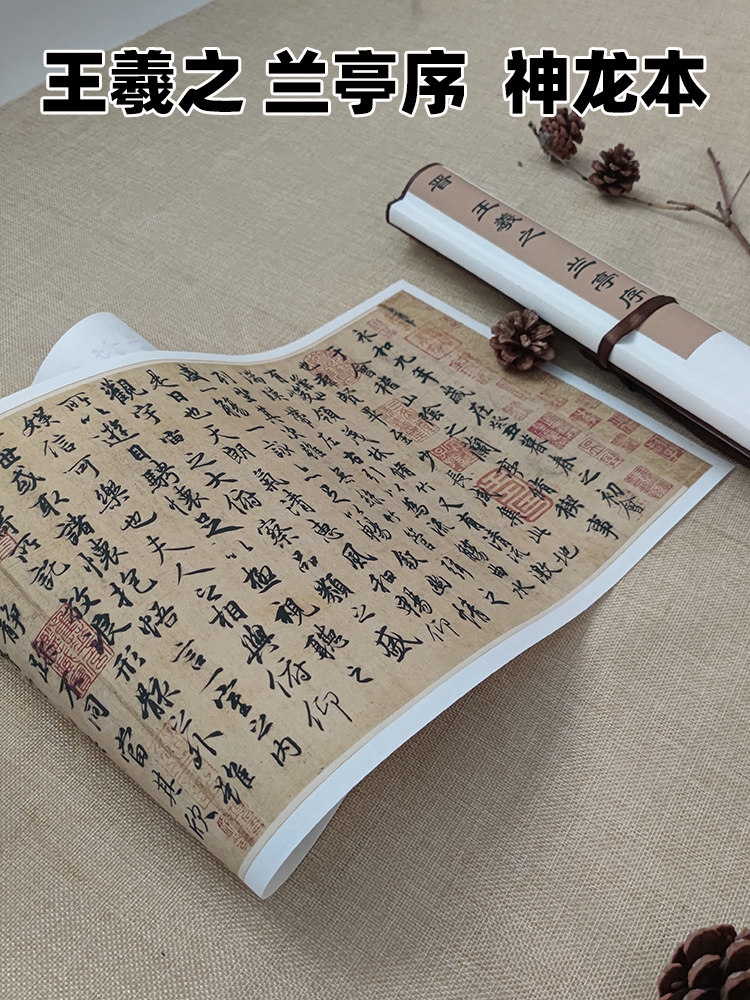 王羲之 兰亭序 神龙本
晋 王羲之 兰亭序
永和九年歲在癸丑暮春之初會
于會稽山陰之蘭亭脩禊事
也羣賢畢至少長咸集此地
有崇山峻領茂林脩竹又有清流激
湍暎帶左右引以為流觴曲水
列坐其次雖無絲竹管弦之
盛一觴一詠亦足以暢敘幽情
是日也天朗氣清惠風和暢仰
觀宇宙之大俯察品類之盛
所以遊目騁懷足以極視聽之
娛信可樂也夫人之相與俯仰
世或取諸懷抱悟言一室之內
寄所託放浪形骸之外雖
靜躁不同當其欣